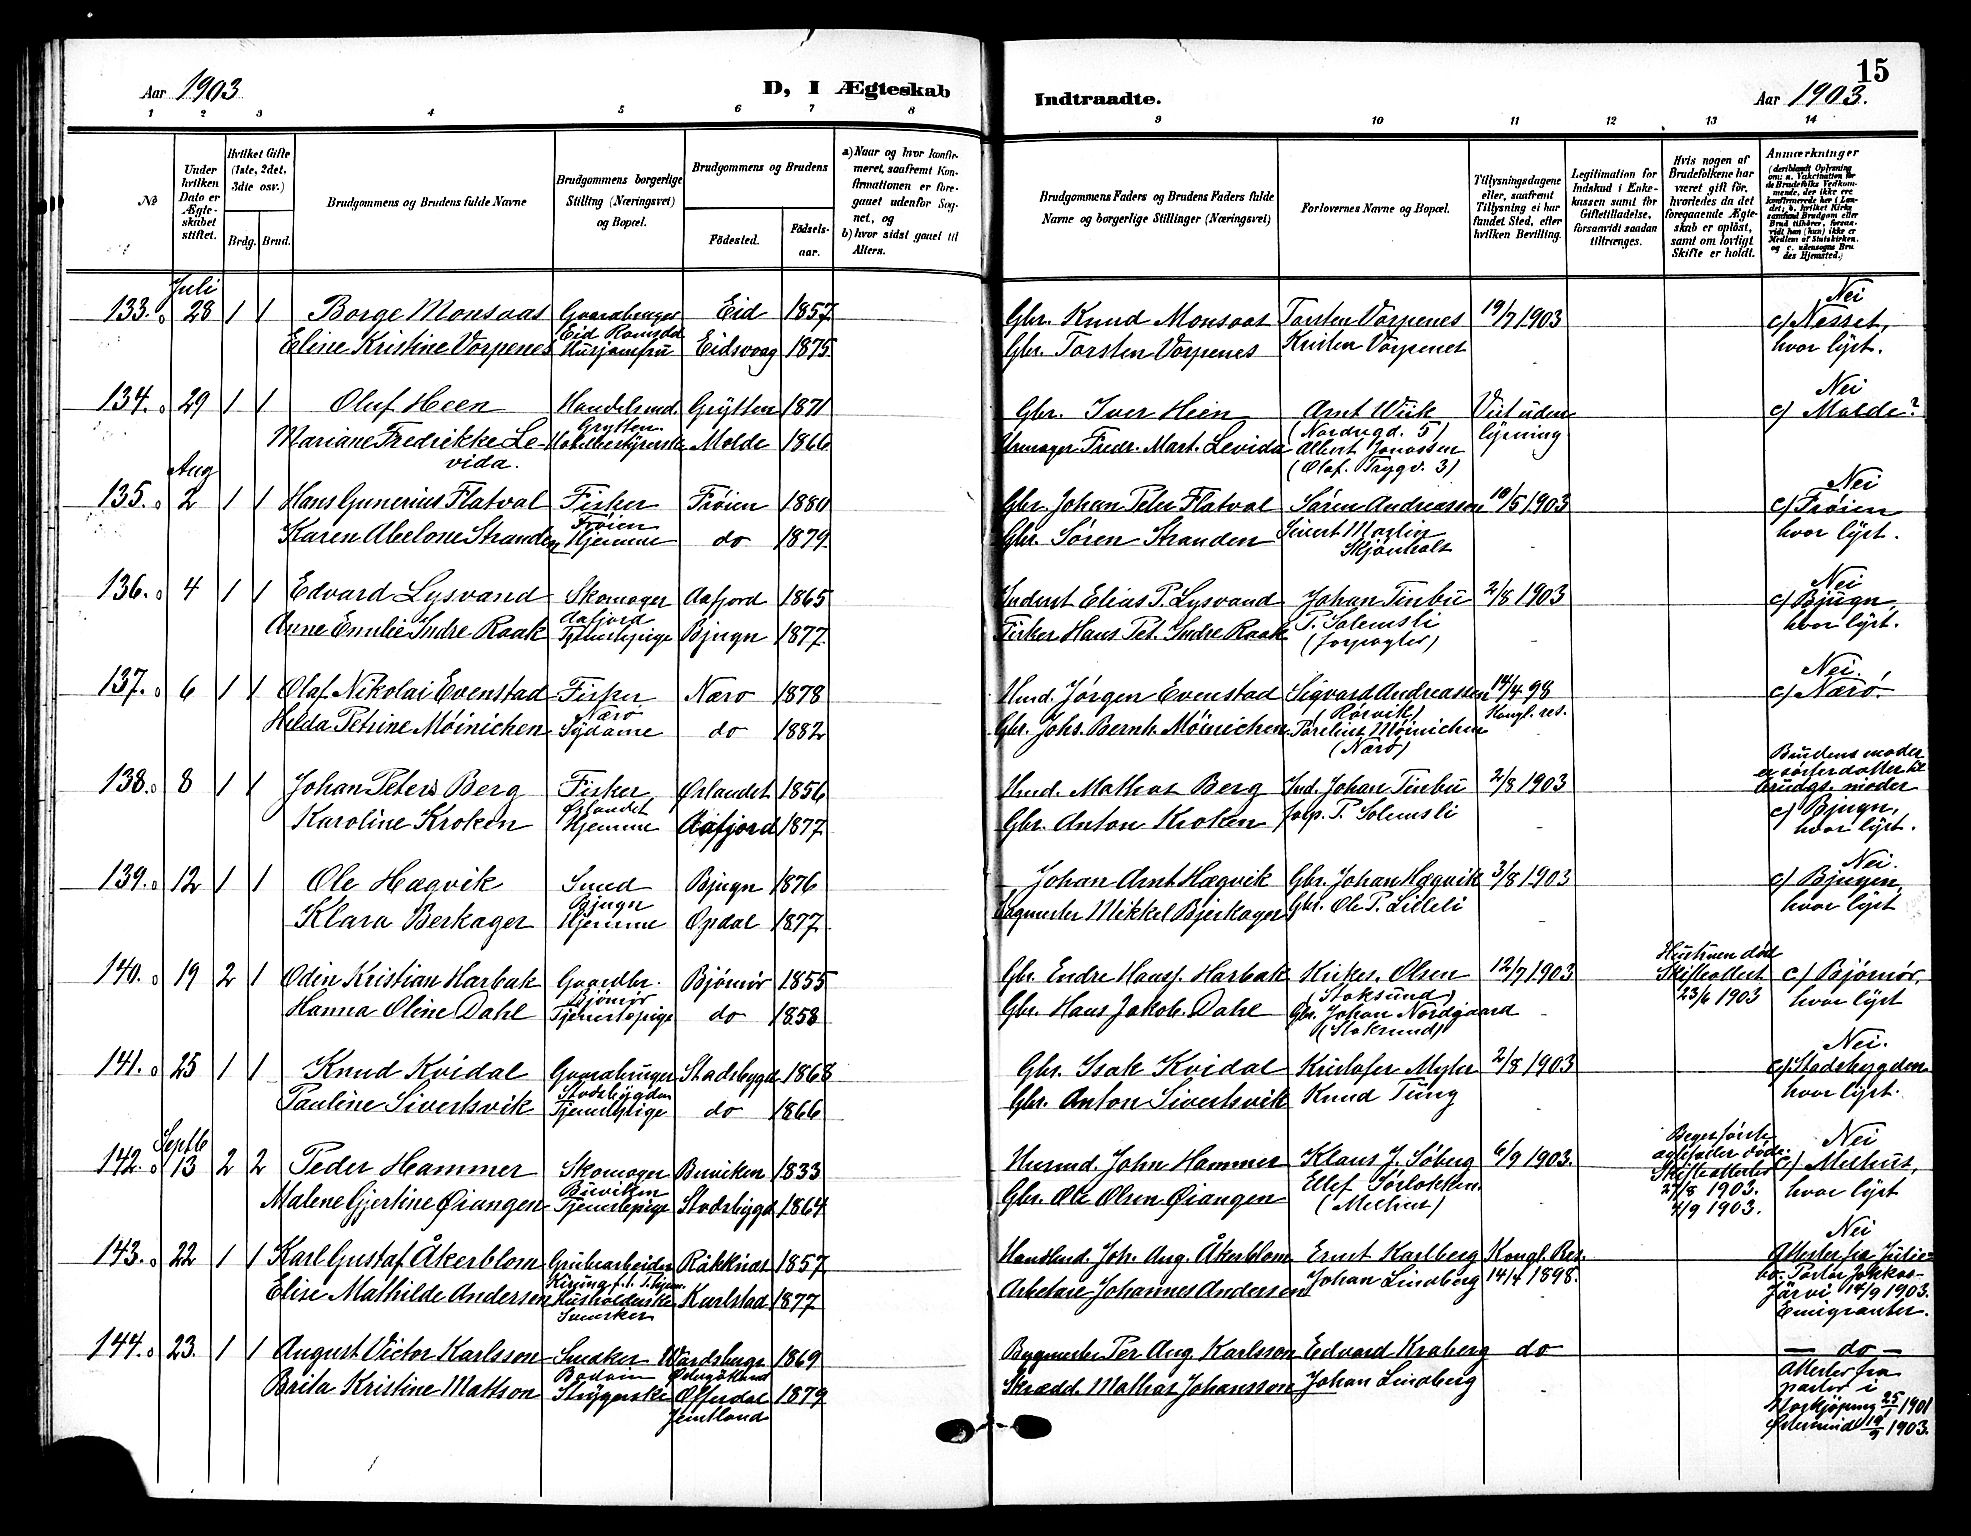 15
Aar 1903
D, I Ægteskab
Indtraadte.
Aar 1903.
1 2 3 4 5 6 7 8 9 10 11 12 13 14
No
Under hvilken Dato er Ægteskabet stiftet.
Hvilket Gifte (1ste, 2det, 3die osv.)
Brdg. Brud.
Brudgommens og Brudens fulde Navne
Brudgommens borgerlige Stilling (Næringsvei) og Bopæl.
Brudgommens og Brudens
Fødested.
Fødselsaar.
a) Naar og hvor konfirmeret, saafremt Konfirmationen er foregaaet udenfor Sognet, og
b) hvor sidst gaaet til Alters.
Brudgommens Faders og Brudens Faders fulde Navne og borgerlige Stillinger (Næringsvei)
Forlovernes Navne og Bopæl.
Tillysningsdagene eller, saafremt Tillysning ei har fundet Sted, efter hvilken Bevilling.
Legitimation for Indskud i Enkekassen samt for Giftetilladelse, forsaavidt saadan tiltrænges.
Hvis nogen af Brudefolkene har været gift før, hvorledes da det foregaaende Ægteskab er opløst, samt om lovligt Skifte er holdt.
Anmærkninger
Juli
133. 28 1 1 Borge Monsaas Gaardbruger Eid 1857 Gbr. Knud Monsaas Torsten Vorpenes 19/7 1903 Nei
Eid Romsdal c) Nesset,
Eline Kristine Vorpenes Husjomfru Eidsvaag 1875 Gbr. Torsten Vorpenes Kristen Vorpenes hvor lyst.
134. 29 1 1 Oluf Heen Handelsmd. Grytten 1871 Gbr. Iver Heen Arnt Wiik Viet uden Nei
Grytten (Nordregd. 5) lysning c) Molde?
Mariane Fredrikke Levida. Hotelbestyrerske Molde 1866 Urmager Fredr. Mart. Levida Albert Jonassen
(Olaf. Trygv. 3)
Aug
135. 2 1 1 Hans Gunerius Flatval Fisker Frøien 1880 Gbr. Johan Peter Flatval Søren Andreassen 10/5 1903 Nei
Frøien c) Frøien
Karen Abelone Stranden Hjemme do 1879 Gbr. Søren Stranden Sivert Martin hvor lyst.
136. 4 1 1 Edvard Lysvand Skomager Aafjord 1865 Inderst Elias P. Lysvand Johan Tinbu 2/8 1903 Nei
Aafjord P. Solemsli c) Bjugn,
Anne Emilie Indre Raak Tjenestepige Bjugn 1877 Fisker Hans Pet. Indre Raak hvor lyst.
137. 6 1 1 Olaf Nikolai Evenstad Fisker Nærø 1878 Husmd. Jørgen Evenstad Sigvard Andreassen 14/4 98 Nei.
Nærø (Rørvik) Kongl. res. c) Nærø.
Hilda Petrine Møinichen Sydame do 1882 Gbr. Johs. Bernh. Møinichen Møinichen
(Nærø)
138. 8 1 1 Johan Peters Berg Fisker Ørlandet 1856 Husmd. Mathias Berg Ind. Johan Tinbu 2/8 1903 Brudens moder
Ørlandet er søsterdatter til brudgs. moder
Karoline Kroken Hjemme Aafjord 1877 Gbr. Anton Kroken P. Solemsli c) Bjugn,
hvor lyst.
139. 12 1 1 Ole Hægvik Smed Bjugn 1876 Johan Arnt Hægvik Gbr. Johan Hægvik 3/8 1903 Nei.
Bjugn c) Bjugn,
Klara Berkager Hjemme Opdal 1877 Mikkel Bjerkager Gbr. Ole P. Lilleli hvor lyst
140. 19 2 1 Odin Kristian Harbak Gaardbr. Bjørnør 1855 Gbr. Endre Hansj. Harbak Kirkes. Olsen 12/7 1903 Hustruen død Skifteattest 23/6 1903 c) Bjørnør,
Bjørnør (Stoksund) hvor lyst
Hanna Oline Dahl Tjenestepige do 1858 Gbr. Hans Jakob. Dahl Gbr. Johan Nordgaard
(Stoksund)
141. 25 1 1 Knud Kvidal Gaardbruger Stadsbygd 1868 Gbr. Isak Kvidal Kristofer Myler 2/8 1903 Nei.
Stadsbygden c) Stadsbygden
Pauline Sivertsvik Tjenestepige do 1866 Gbr. Anton Sivertsvik Knud Tung hvor lyst.
Septb
142. 13 2 2 Peder Hammer Skomager Buviken 1833 Husmd. John Hammer Klaus J. Søberg 6/9 1903. Nei
Buviken Skifteattester c) Melhus,
Malene Gjertine Øiangen Tjenestepige Stadsbygd 1864 Gbr. Ole Olsen Øiangen Ellef Sørløkken 27/8 1903. hvor lyst
(Melhus) 4/9 1903.
143. 22 1 1 Karl Gustaf Åkerblom Grubearbeider Räkknäs 1857 Joh. Aug. Åkerblom Ernst Karlberg Kongl. Res. Nei
Elise Mathilde Andersen Husholderske Karlstad 1877 Arbetare Johannes Andersen Johan Lindberg 14/4 1898. Attester fra
Svensker 14/9 1903.
Emigranter.
144. 23. 1 1 August Victor Karlsson Snedker Wardsbergs 1869 Bygmester Per Aug. Karlsson Edvard Kraberg do — do —
Bodøin Østergötland Attester fra
Brita Kristine Mattson Strygerske Offerdal 1879 Skrædd. Mathias Johansson Johan Lindberg pastor i
Jemtland Norrkjøping 25/1 1901
Østersund 19/9 1903.